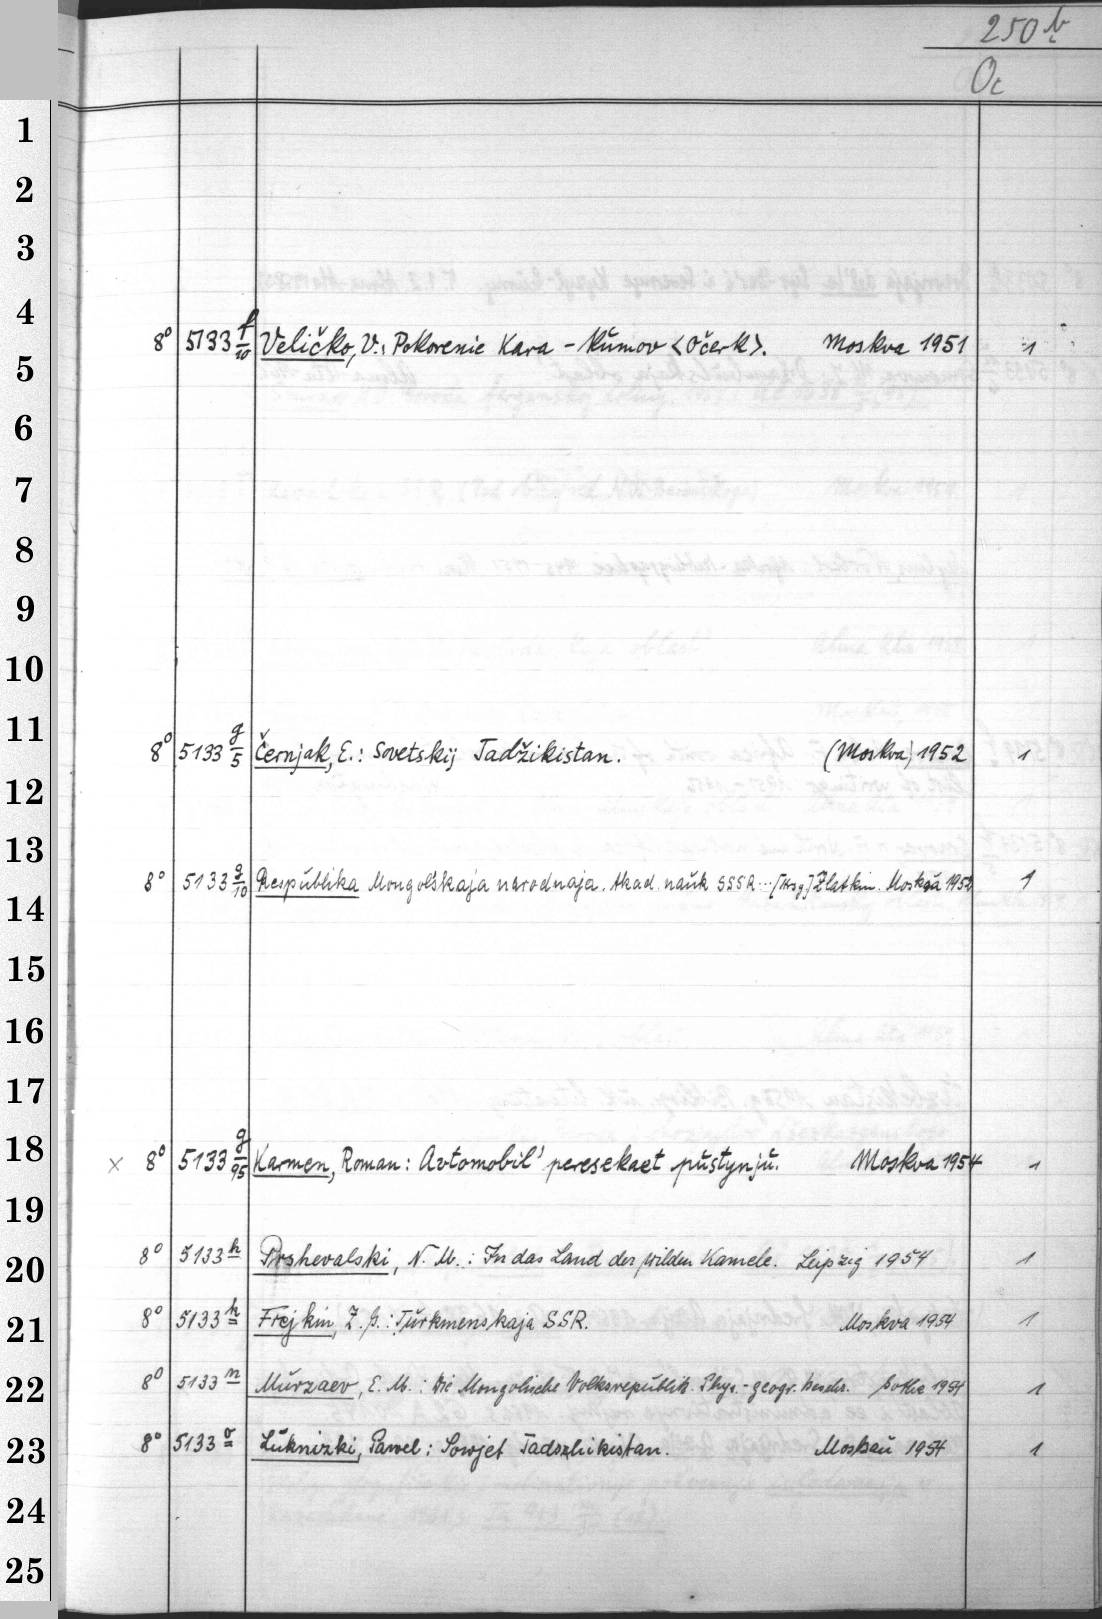 250 b
Oc
1
2
3
4
8° 5133 f/10 Veličko, V.: Pokorenie Kara-Kumov <Očerk>. Moskva 1951 1
5
6
7
8
9
10
11
8° 5133 g/5 Černjak, E.: Sovetskij Tadžikistan. (Moskva) 1952 1
12
13
8° 5133 g/10 Respublika Mongol'skaja narodnaja. Akad. nauk SSSR ... [Hrsg.] Zlatkin. Moskva 1952 1
14
15
16
17
18
× 8° 5133 g/95 Karmen, Roman: Avtomobil' peresekaet pustynju. Moskva 1954 1
19
8° 5133 h Prshevalski, N. M.: In das Land der wilden Kamele. Leipzig 1954 1
20
8° 5133 k Frejkin, Z. G.: Turkmenskaja SSR. Moskva 1954 1
21
8° 5133 n Murzaev, E. M.: Die Mongolische Volksrepublik. Phys.-geogr. Beschr. Gotha 1954 1
22
8° 5133 o Luknizki, Pawel: Sowjet Tadshikistan. Moskau 1954 1
23
24
25